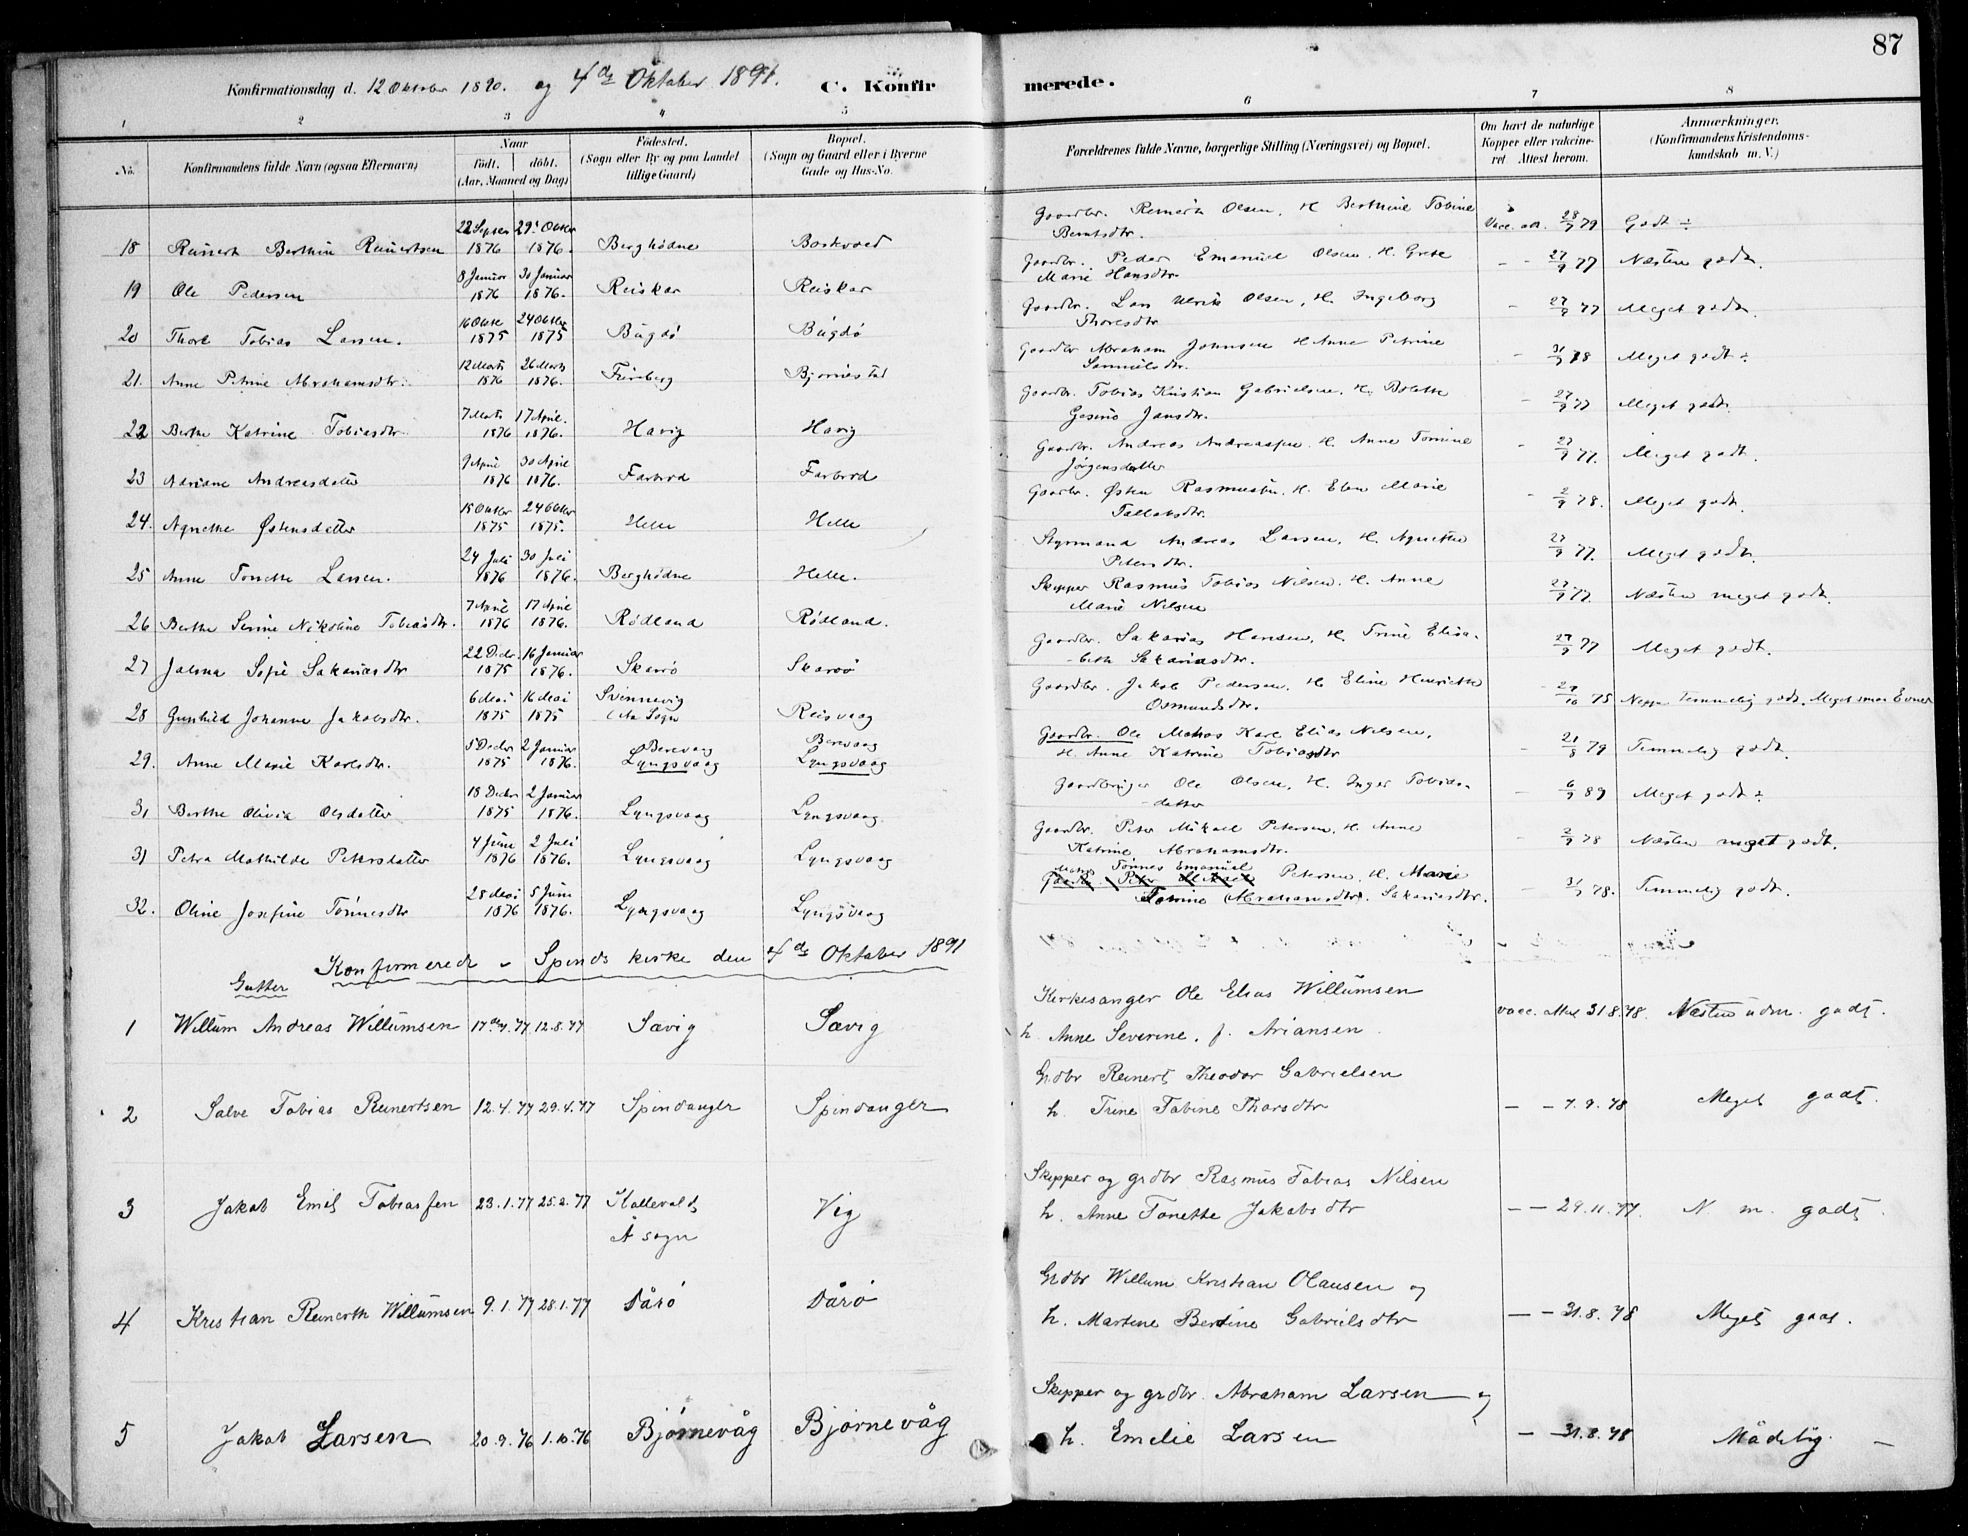 87
Konfirmationsdag d. 12 Oktober 1890. og 4de Oktober 1891. C. Konfirmerede.
1 2 3 4 5 6 7 8
No. Konfirmandens fulde Navn (ogsaa Efternavn) Naar født. døbt. (Aar, Maaned og Dag) Fødested. (Sogn eller By og paa Landet tillige Gaard) Bopæl. (Sogn og Gaard eller i Byerne Gade og Hus-No. Forældrenes fulde Navne, borgerlige Stilling (Næringsvei) og Bopæl. Om havt de naturlige Kopper eller vakcineret. Attest herom. Anmærkninger. (Konfirmandens Kristendomskundskab m. V.)
18 Reinert Berthin Reinertsen 22 Septem 1876 29 Oktbr 1876. Berghødne Gaardbr. Reinert Olsen, H. Berthine Tobine Berntsdtr. Vacc. att. 28/7 79 Godt ÷
19 Ole Pedersen 8 Januar 1876 30 Januar 1876. Reiskar Reiskar Gaardbr. Peder Emanuel Olsen. H. Grete Marie Hansdtr. - - 27/9 77 Næsten godt.
20 Thore Tobias Larsen. 16 Oktr 1875 24 Oktbr 1875 Bugdø Bugdø Gaardbr. Lars Ulrik Olsen, H. Ingeborg Thoresdtr - 27/9 77 Meget godt.
21. Anne Petrine Abrahamsdtr. 12 Marts 1876 26 Marts 1876. Bjørnestad Gaardbr Abraham Johnsen H Anne Petrine Samuelsdtr. - 78 Meget godt ÷
22 Berthe Katrine Tobiasdtr. 7 Marts 1876 17 April. 1876. Havig Havig Gaardbr. Tobias Kristian Gabrielsen. H. Bolette Gesine Jansdtr. - 27/9 77 Meget godt.
23 Adriane Andreasdatter 9 April 1876 30 April 1876. Farbrod Farbrod Gaardbr. Andreas Andreassen. H. Anne Tomine Jørgensdatter - 27/9 77. Meget godt.
24. Agnethe Østensdatter 15 Oktbr 1875 24 Oktbr 1875. Helle Helle Gaardbr. Østen Rasmussen. H. Elen Marie Tallaksdtr. - 2/9 78. Meget godt.
25 Anne Tonette Larsen. 24 Juli 1876 30 Juli 1876. Berghødne Helle. Styrmand Andreas Larsen, H. Agnethe Petersdtr. 27/9 77. Meget godt.
26 Berthe Serine Nikoline Tobiasdtr. 7 April 1876 17 April 1876. Rødland Rødland. Skipper Rasmus Tobias Nilsen. H. Anne Marie Nilsen 27/9 77. Næsten meget godt.
27 Jalma Sofie Sakariasdtr 22 Decbr. 1875 16 Januar 1876. Skarvø Skarvø Gaardbr. Sakarias Hansen, H. Trine Elisabeth Sakariasdtr. 27/9 77 Meget godt.
28 Gunhild Johanne Jakobsdtr. 6 Mai 1875 16 Mai 1875 Svennevig Reisvaag Gaardbr. Jakob Pedersen. H Eline Henriette Osmundsdtr. 29/10 75 Neppe Temmelig godt. Meget smaa Evner
29. Anne Marie Karlsdtr. 5 Decbr 1875 2 Januar 1876. Berevaag Lyngsvaag Berevaag Lyngsvaag Gaardbr. Ole Matros Karl Elias Nilsen, H. Anne Katrine Tobiasdtr - 21/8 79 Temmelig godt.
31 Berthe Olivia Olsdatter 18 Decbr 1875 2 Januar 1876. Lyngsvaag Lyngsvaag. Gaardbruger Ole Olsen, H. Inger Tobiasdatter - 6/9 89 Meget godt ÷
31 Petra Mathilde Petersdatter 4 Juni 1876 2 Juli 1876. Lyngsvaag Lyngsvaag Gaardbr. Peter Mikael Petersen, H. Anne Katrine Abrahamsdtr. - 2/9 78 Næsten meget godt.
32. Oline Josefine Tønnesdtr 28 Mai 1876 5 Juni 1876. Lyngsvaag Lyngsvaag Matros Tønnes Emanuel Petersen. H. Marie Tomine Abrahamsdtr. Sakariasdtr. - 78. Temmelig godt.
Konfirmerede i Spinds kirke den 4de Oktober 1891
Gutter
1 Willum Andreas Willumsen 12.8.77 Sævig Sævig Kirkesanger Ole Elias Willumsen h. Anne Severine, f. Ariansen vacc. attest 31.8.78. Næsten udm. godt.
2 Salve Tobias Reinertsen 12.4.77 29.4.77 Spindanger Spindanger Grdbr Reinert Theodor Gabrielsen h. Trine Tobine Thorsdtr - - 7.9.78 Meget godt.
3 Jakob Emil Tobiassen 23.1.77 25.2.77 Kallevold Å sogn Vig Skipper og grdbr Rasmus Tobias Nilsen h. Anne Tonette Jakobsdtr - - 29.11.77. N. m. godt.
4 Kristian Reinerth Willumsen 9.1.77 28.1.77 Dårø Dårø Grdbr Willum Kristian Olausen og h. Martine Bertine Gabrielsdtr - - 31.8.78 Meget godt.
5 Jakob Larsen 20.9.76 1.10.76 Bjørnevåg Bjørnevåg Skipper og grdbr. Abraham Larsen og h. Emelie Larsen - - 31.8.78 Mådelig. -